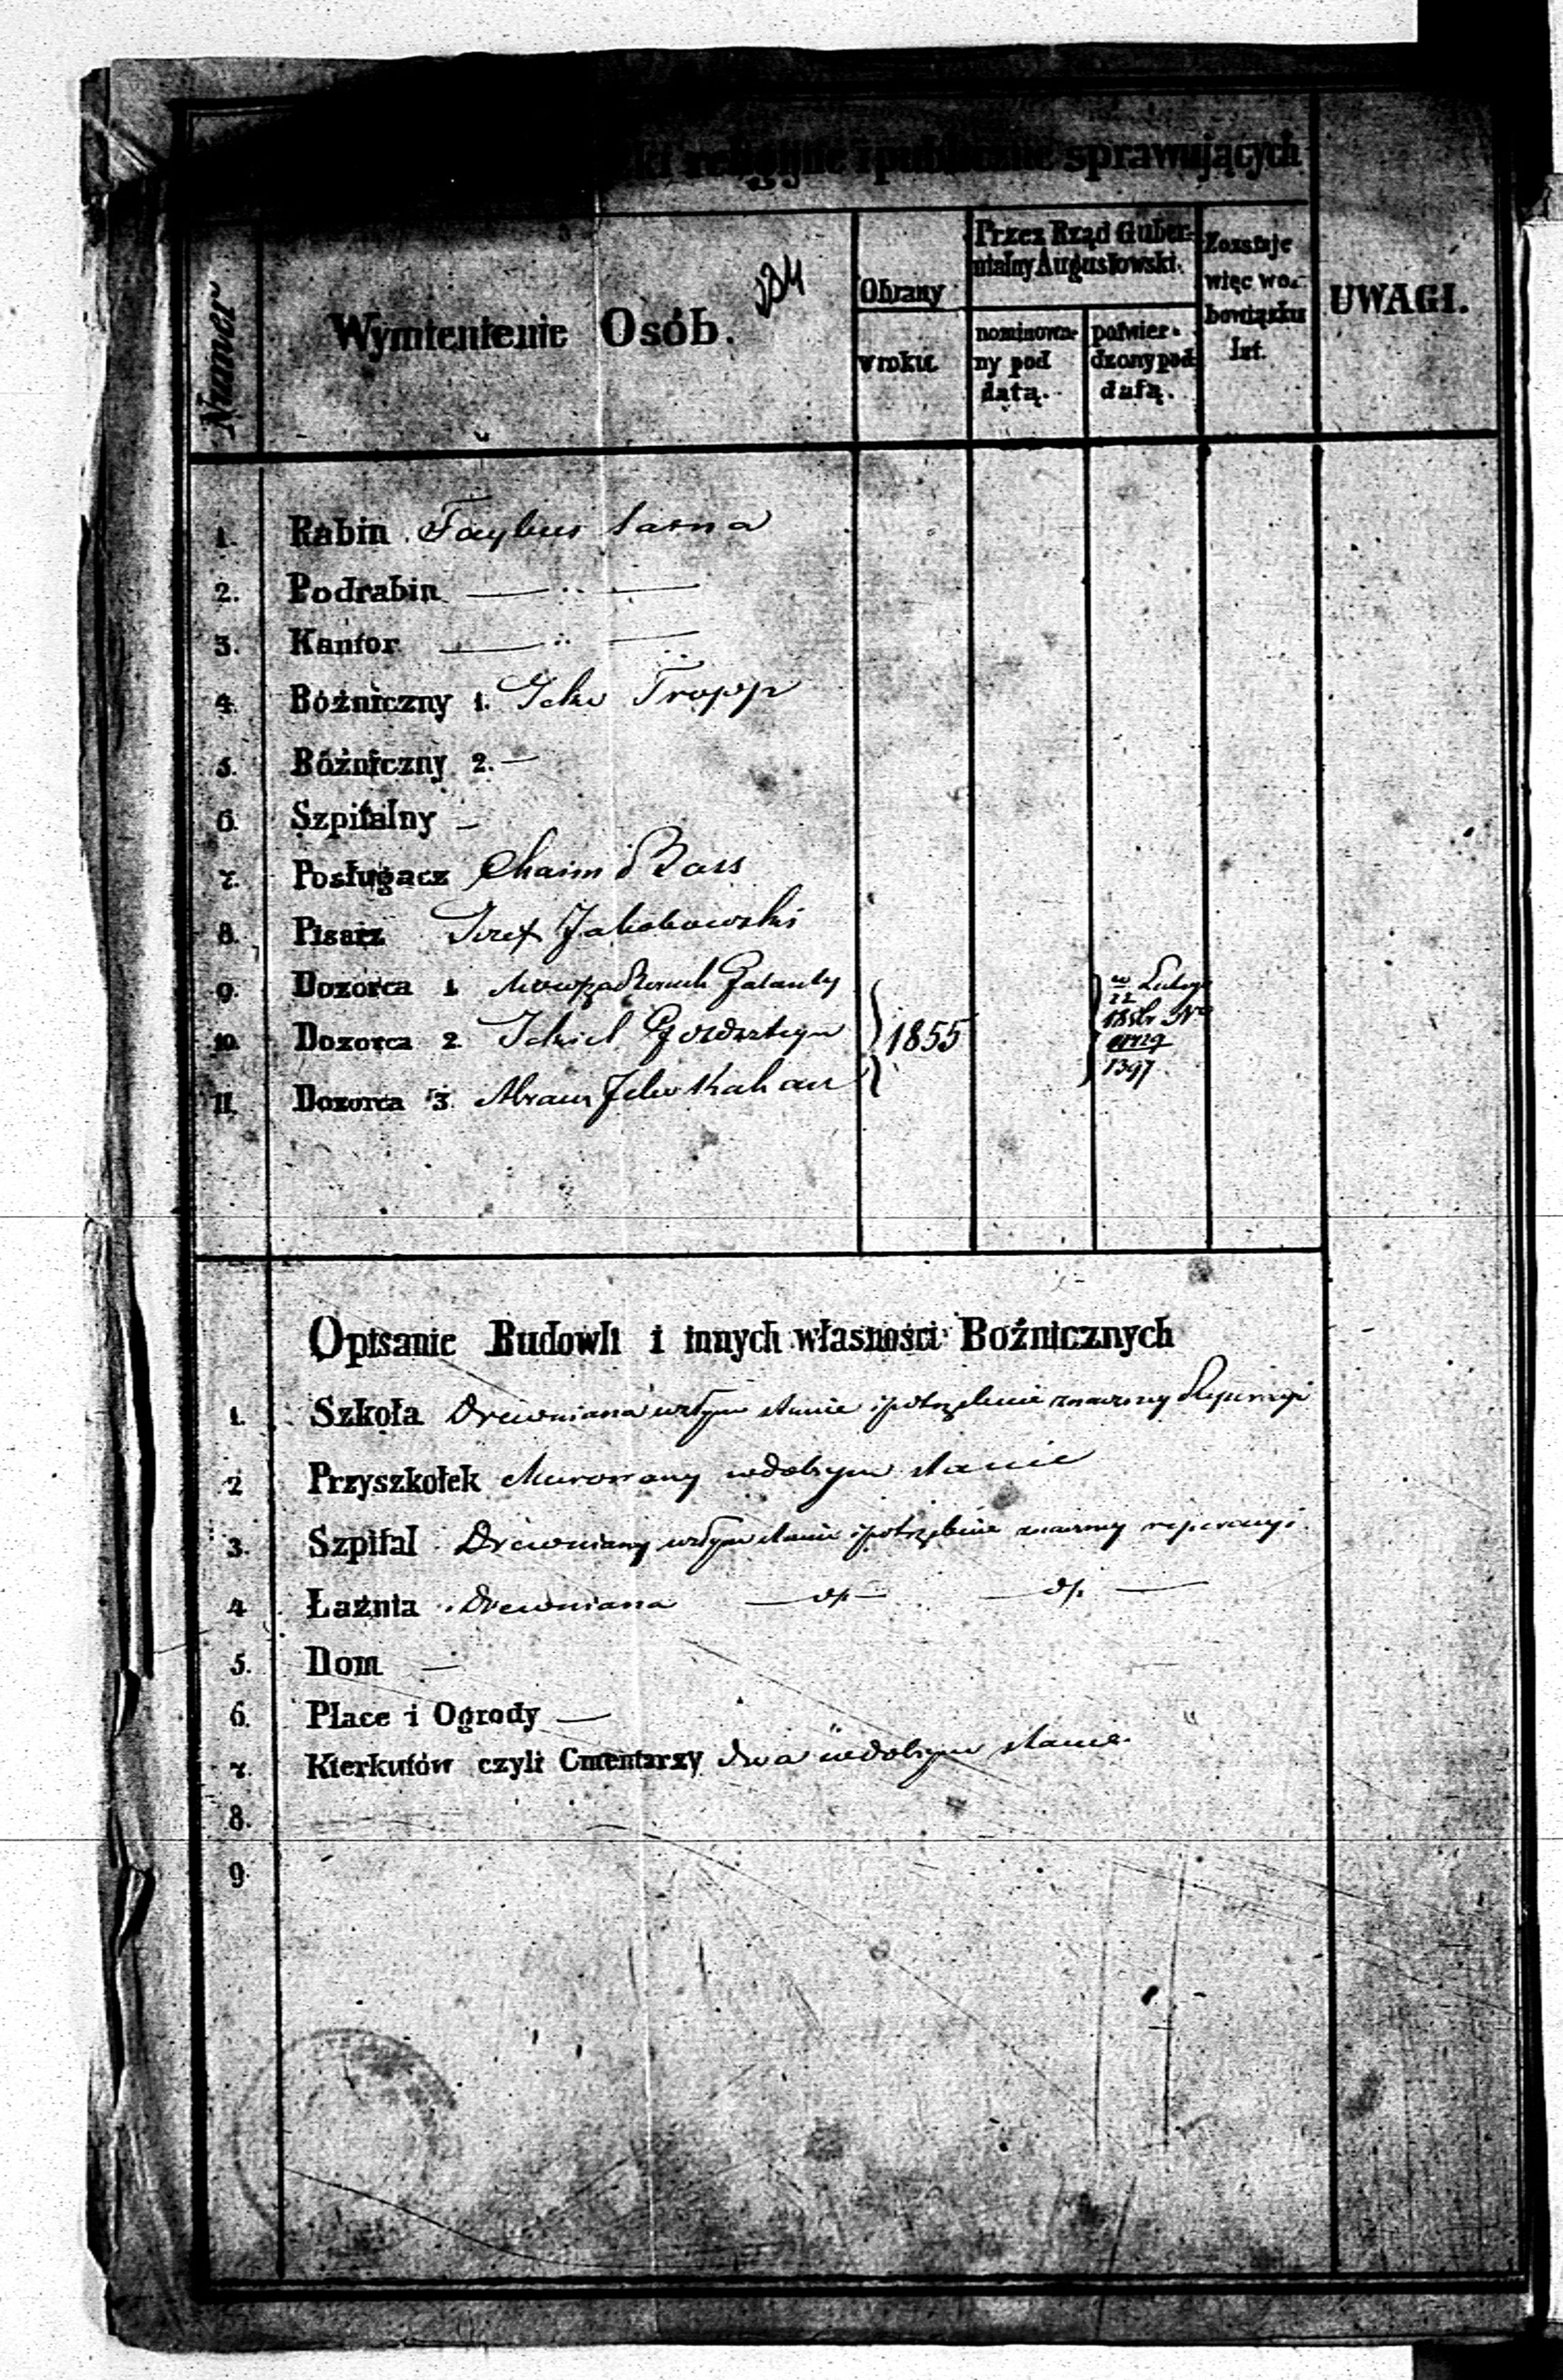 religijne i publiczne sprawujących
Numer
Wymienienie Osób.
Obrany
w roku.
Przez Rząd Guber-
nialny Augustowski.
nominowa-
ny pod
datą.
potwier-
dzony pod
datą.
Zostaje
więc w o-
bowiązku
lat.
UWAGI.
1. Rabin Faybus
2. Podrabin — " —
3. Kantor — " —
4. Bóżniczny 1. Icko Tropp
5. Bóżniczny 2. —
6. Szpitalny —
7. Posługacz Chaim Bass
8. Pisarz Jakobowski
9. Dozorca 1. Galanty
10. Dozorca 2.
11. Dozorca 3. Abram Kahan
1855
22
1397
Opisanie Budowli i innych własności Bóźnicznych
1. Szkoła Drewniana w złym stanie i potrzebuie znaczney Reperacyi
2 Przyszkołek Murowany w dobrym stanie
3. Szpital Drewniany w złym stanie i potrzebuie znaczney reperacyi
4 Łaźnia Drewniana — d/: — — d/: —
5. Dom —
6. Place i Ogrody —
7. Kierkutów czyli Cmentarzy dwa w dobrym stanie
8.
9.